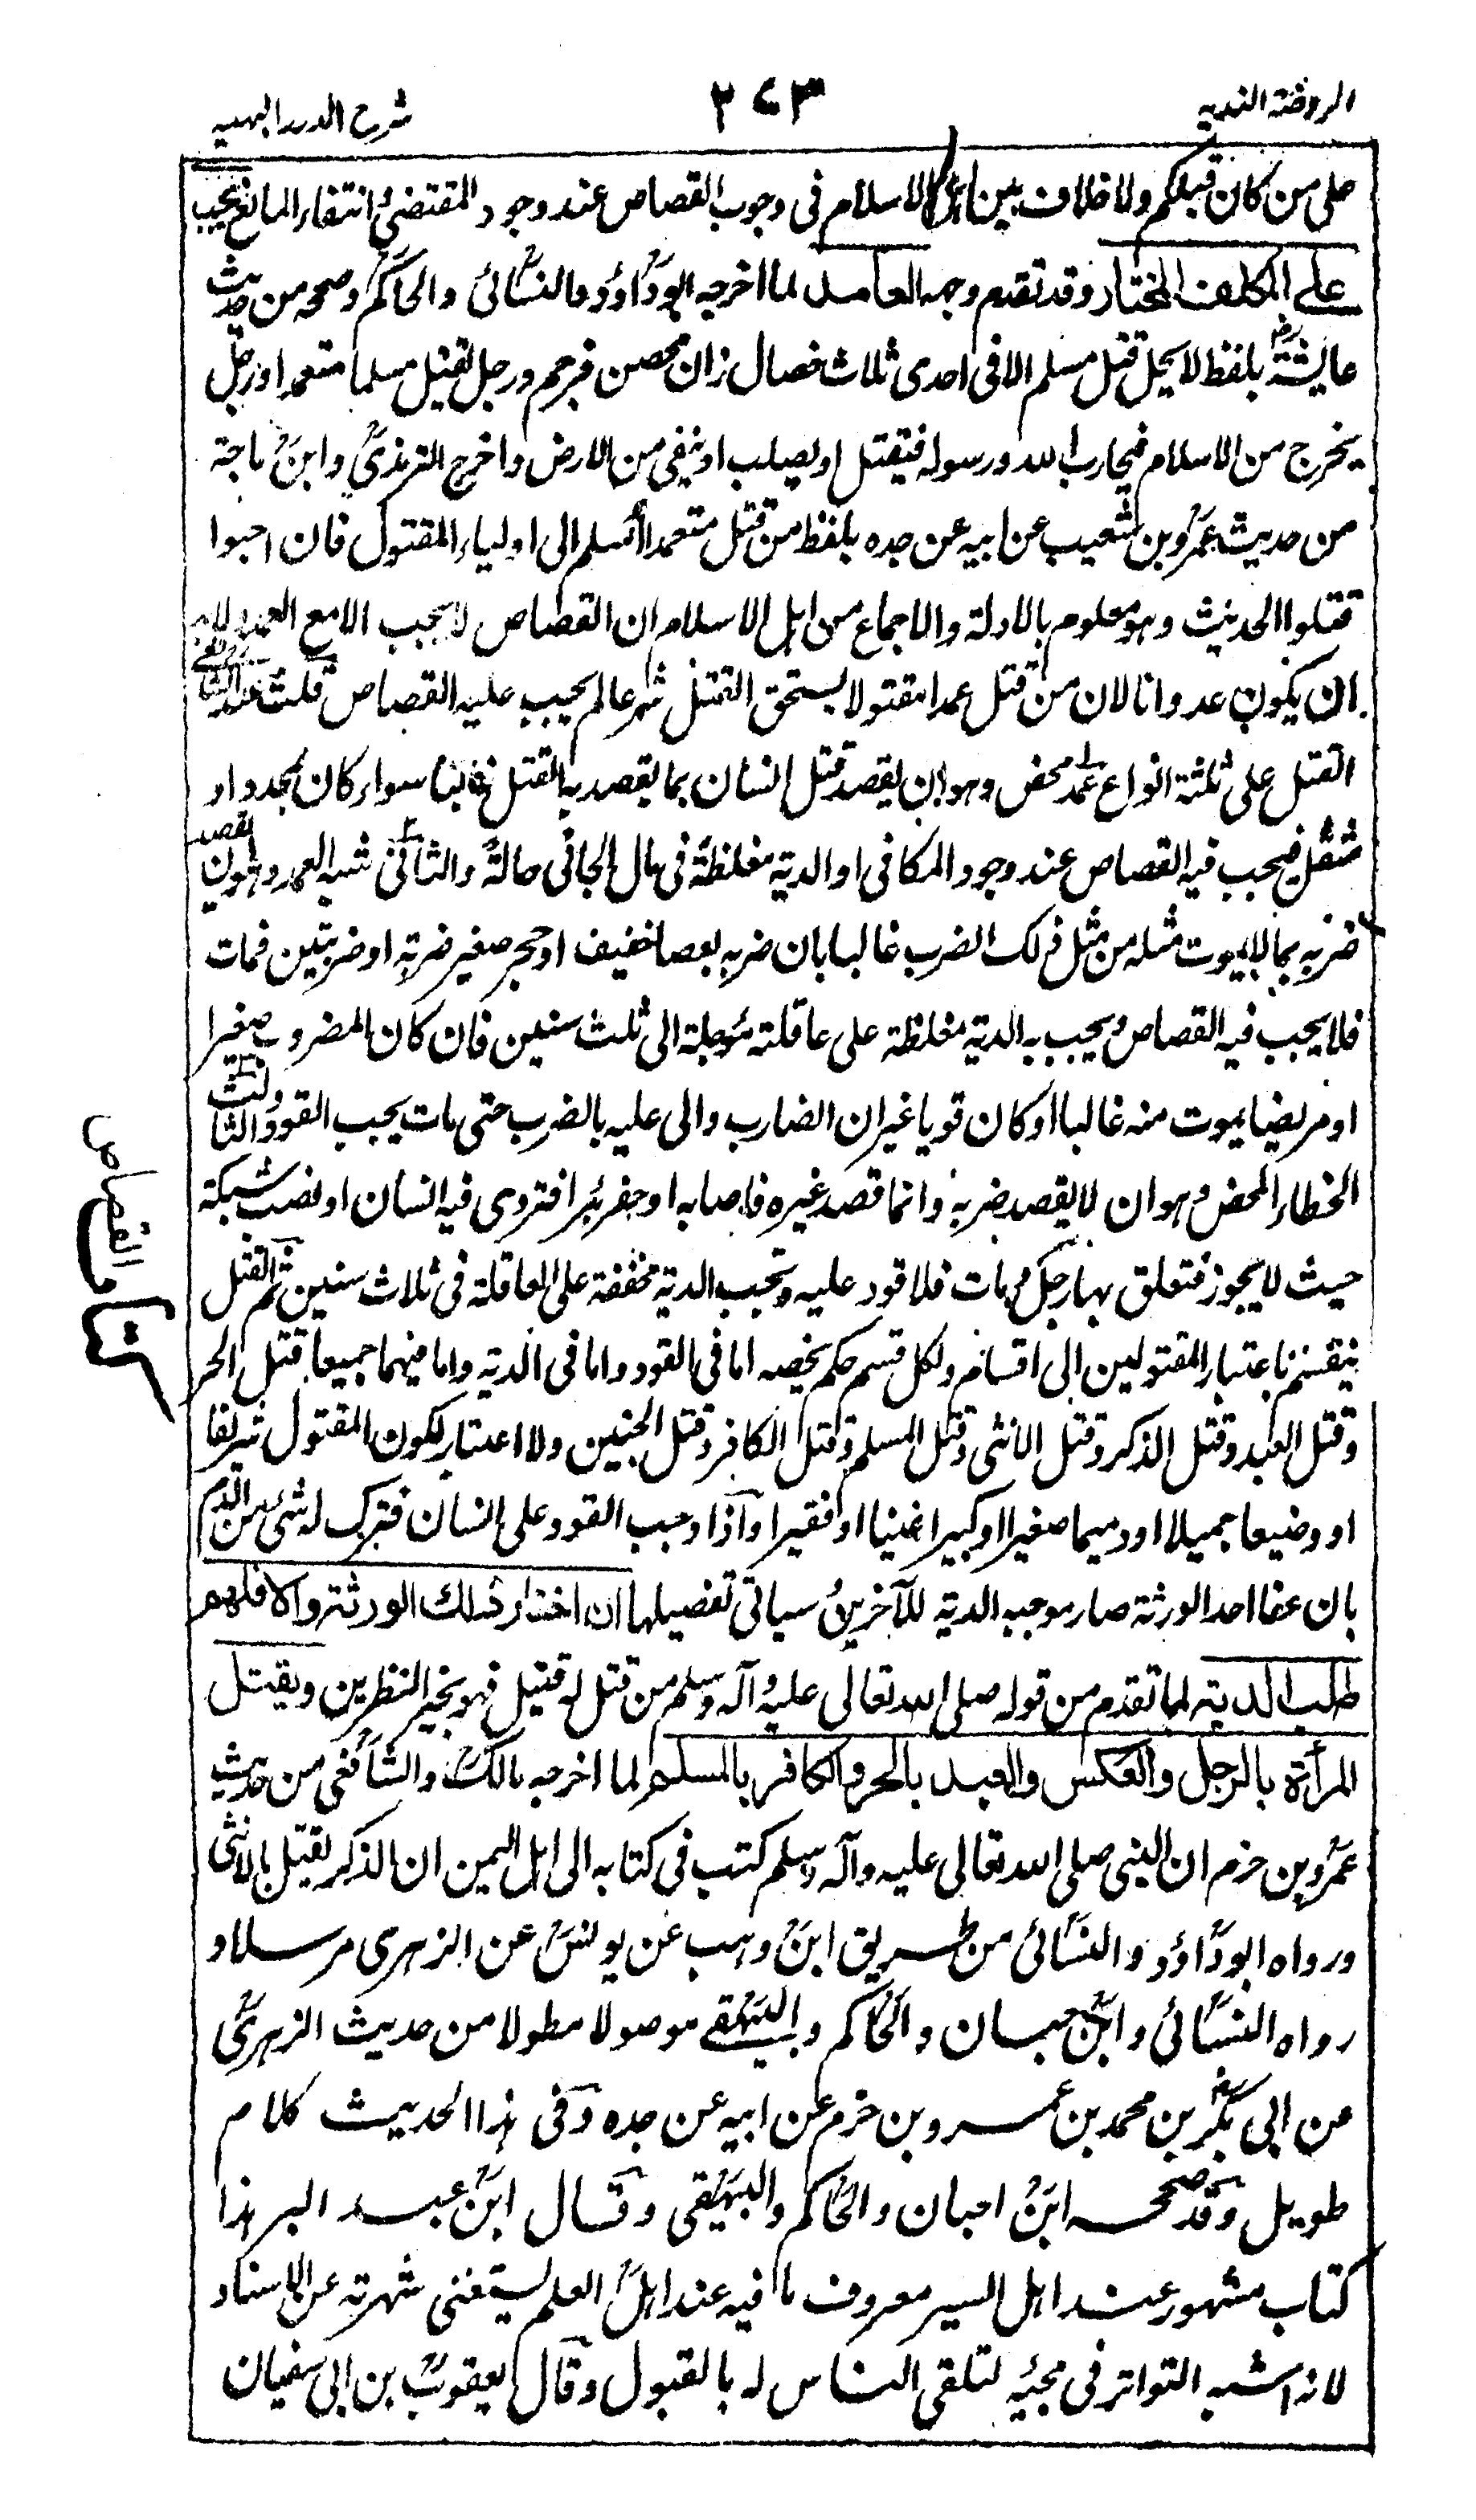 الروضة الندية
٢٧٣
شرح الدرر البهية
على من كان قبلكم ولا خلاف بين اهل الاسلام فى وجوب القصاص عند وجود المقتضى وانتفاء المانع يجب
على المكلف المختار وقد تقدم وجه العامد لما اخرجه ابوداؤد والنسائى والحاكم وصححه من حديث
عايشة رض بلفظ لا يحل قتل مسلم الا فى احدى ثلاث خصال زان محصن فيرجم ورجل يقتل مسلما متعمدا ورجل
يخرج من الاسلام فيحارب الله ورسوله فيقتل او يصلب او ينفى من الارض واخرج الترمذى وابن ماجة
من حديث عمرو بن شعيب عن ابيه عن جده بلفظ من قتل متعمدا اسلم الى اولياء المقتول فان احبوا
قتلوا الحديث وهو معلوم بالادلة والاجماع من اهل الاسلام ان القصاص لا يجب الا مع العمد ولابد
ان يكون عدوانا لان من قتل عمدا مقتولا يستحق القتل شرعا لم يجب عليه القصاص قلت عند الشافعى
القتل على ثلثة انواع عمد محض وهو ان يقصد قتل انسان بما يقصد به القتل غالبا سواء كان بمحدد او
مثقل فيجب فيه القصاص عند وجود المكافى او الدية مغلظة فى مال الجانى حالة والثانى شبه العمد وهو ان يقصد
ضربه بما لا يموت مثله من مثل ذلك الضرب غالبا بان ضربه بعصا خفيف او حجر صغير ضربة او ضربتين فمات
فلا يجب فيه القصاص ويجب به الدية مغلظة على عاقلته مؤجلة الى ثلث سنين فان كان المضروب صغيرا
او مريضا يموت منه غالبا او كان قويا غير ان الضارب والى عليه بالضرب حتى مات يجب القود والثالث
الخطاء المحض وهو ان لا يقصد ضربه وانما قصد غيره فاصابه او حفر بئرا فتردى فيه انسان او نصب شبكة
حيث لا يجوز فتعلق بها رجل ومات فلا قود عليه وتجب الدية مخففة على العاقلة فى ثلاث سنين ثم القتل
ينقسم باعتبار المقتولين الى اقسام ولكل قسم حكم يخصه اما فى القود واما فى الدية واما فيهما جميعا قتل الحر
وقتل العبد وقتل الذكر وقتل الانثى وقتل المسلم وقتل الكافر وقتل الجنين ولا اعتبار لكون المقتول شريفا
او وضيعا جميلا او دميما صغيرا او كبيرا غنيا او فقيرا واذا وجب القود على انسان فترك له شئ من الدم
بان عفا احد الورثة صار موجبه الدية للآخرين سياتى تفصيلها ان اختار ذلك الورثة والا فلهم
طلب الدية لما تقدم من قوله صلى الله تعالى عليه وآله وسلم من قتل له قتيل فهو بخير النظرين ويقتل
المرأة بالرجل والعكس والعبد بالحر والكافر بالمسلم لما اخرجه مالك والشافعى من حديث
عمرو بن حزم ان النبى صلى الله تعالى عليه وآله وسلم كتب فى كتابه الى اهل اليمن ان الذكر يقتل بالانثى
ورواه ابوداؤد والنسائى من طريق ابن وهب عن يونس عن الزهرى مرسلا و
رواه النسائى وابن حبان والحاكم والبيهقى موصولا مطولا من حديث الزهرى
عن ابى بكر بن محمد بن عمرو بن حزم عن ابيه عن جده وفى هذا الحديث كلام
طويل وقد صححه ابن احبان والحاكم والبيهقى وقال ابن عبد البر هذا
كتاب مشهور عند اهل السير معروف ما فيه عند اهل العلم يستغنى شهرته عن الاسناد
لانه اشبه التواتر فى مجيئه لتلقى الناس له بالقبول وقال يعقوب بن ابى سفيان
القصاص